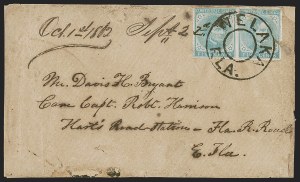 Oct 1st 1863 Sept 2
WELAKA
FLA.
Mr. Davis H. Bryant
Care Capt. Robt. Harrison
Hart's Road Station - Fla. R. Road
E. Fla